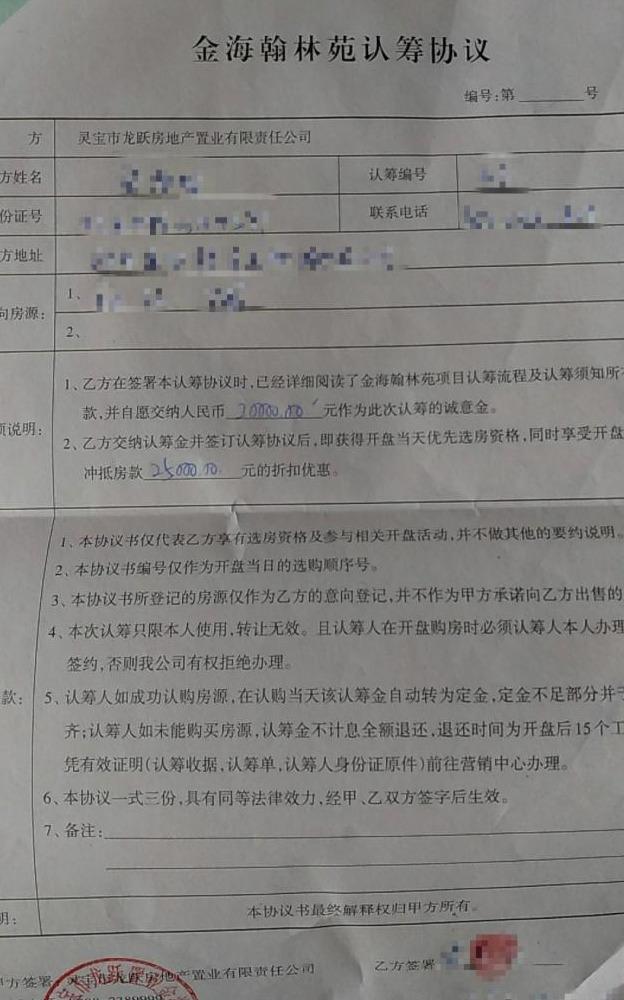 金海翰林苑认筹协议
编号:第 号
方 灵宝市龙跃房地产置业有限责任公司
方姓名 认筹编号
份证号 联系电话
方地址
向房源: 1、
2、
1、乙方在签署本认筹协议时,已经详细阅读了金海翰林苑项目认筹流程及认筹须知所
款,并自愿交纳人民币 20000.00 元作为此次认筹的诚意金。
说明: 2、乙方交纳认筹金并签订认筹协议后,即获得开盘当天优先选房资格,同时享受开盘
冲抵房款 25000.00. 元的折扣优惠。
1、本协议书仅代表乙方享有选房资格及参与相关开盘活动,并不做其他的要约说明。
2、本协议书编号仅作为开盘当日的选购顺序号。
3、本协议书所登记的房源仅作为乙方的意向登记,并不作为甲方承诺向乙方出售的
4、本次认筹只限本人使用,转让无效。且认筹人在开盘购房时必须认筹人本人办理
签约,否则我公司有权拒绝办理。
款: 5、认筹人如成功认购房源,在认购当天该认筹金自动转为定金,定金不足部分并于
齐;认筹人如未能购买房源,认筹金不计息全额退还,退还时间为开盘后15个工
凭有效证明(认筹收据,认筹单,认筹人身份证原件)前往营销中心办理。
6、本协议一式三份,具有同等法律效力,经甲、乙双方签字后生效。
7、备注:
明: 本协议书最终解释权归甲方所有。
方签署 灵宝市龙跃房地产置业有限责任公司 乙方签署